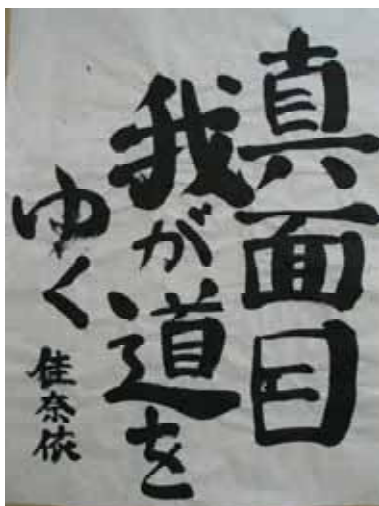 真面目
我が道を
ゆく
佳奈依